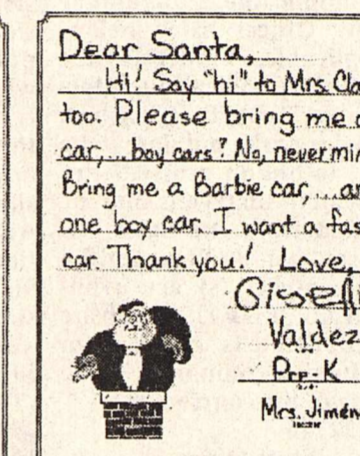 Dear Santa,
Hi! Say "hi" to Mrs. Cla
too. Please bring me a
car,... boy cars? No, never min
Bring me a Barbie car,... a
one boy car. I want a fas
car. Thank you! Love,
Gisell
Valdez
Pre-K
Mrs. Jimén